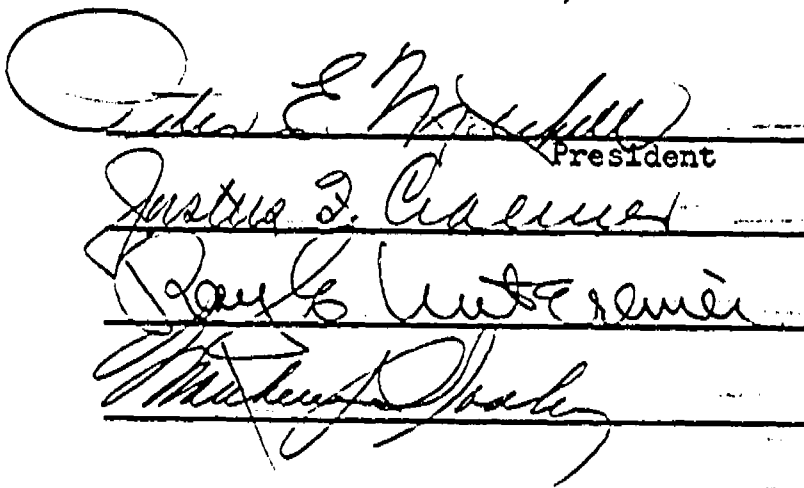 Peter E. Mitchell
President
Justus F. Craemer
Ray E. Untereiner